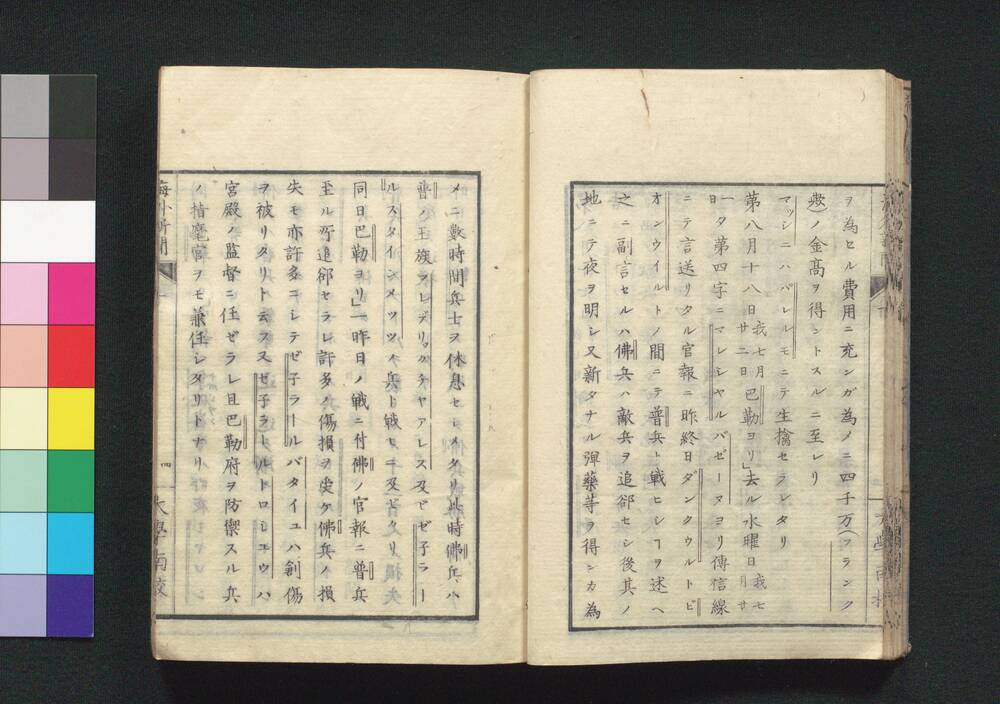 ヲ為セル費用ニ充ンガ為メニ四千万(フランク
歟)ノ金髙ヲ得ントスルニ至レリ
マッシニハバレルモニテ生擒セラレタリ
第八月十八日我七月廿二日巴勒ヨリ」去ル水曜日我七月廿
一日夕第四字ニマレシヤルバゼーヌヨリ傳信線
ニテ言送リタル官報ニ昨終日ダンクウルトビ
オンウイルトノ間ニテ普兵ト戰ヒシヿヲ述ヘ
之ニ副言セルハ佛兵ハ敵兵ヲ追郤セシ後其ノ
地ニテ夜ヲ明シ又新タナル彈藥等ヲ得ンカ為
メニ數時間兵士ヲ休息セシメタリ此時佛兵ハ
普ノ王族フレデリッカチヤアレス及ビゼ子ラー
ルスタインメッツノ兵ト戰ヒニ及ビタリ
同日巴勒ヨリ」一昨日ノ戰ニ付佛ノ官報ニ普兵
至ル所追郤セラレ許多ノ傷損ヲ受ケ佛兵ノ損
失モ亦許多ニシテゼ子ラールバタイユハ創傷
ヲ被リタリト云フ又ゼ子ラールトロシユウハ
宮殿ノ監督ニ任ゼラレ且巴勒府ヲ防禦スル兵
ノ指麾官ヲモ兼任シタリトナリ
海外新聞
四
大學南校